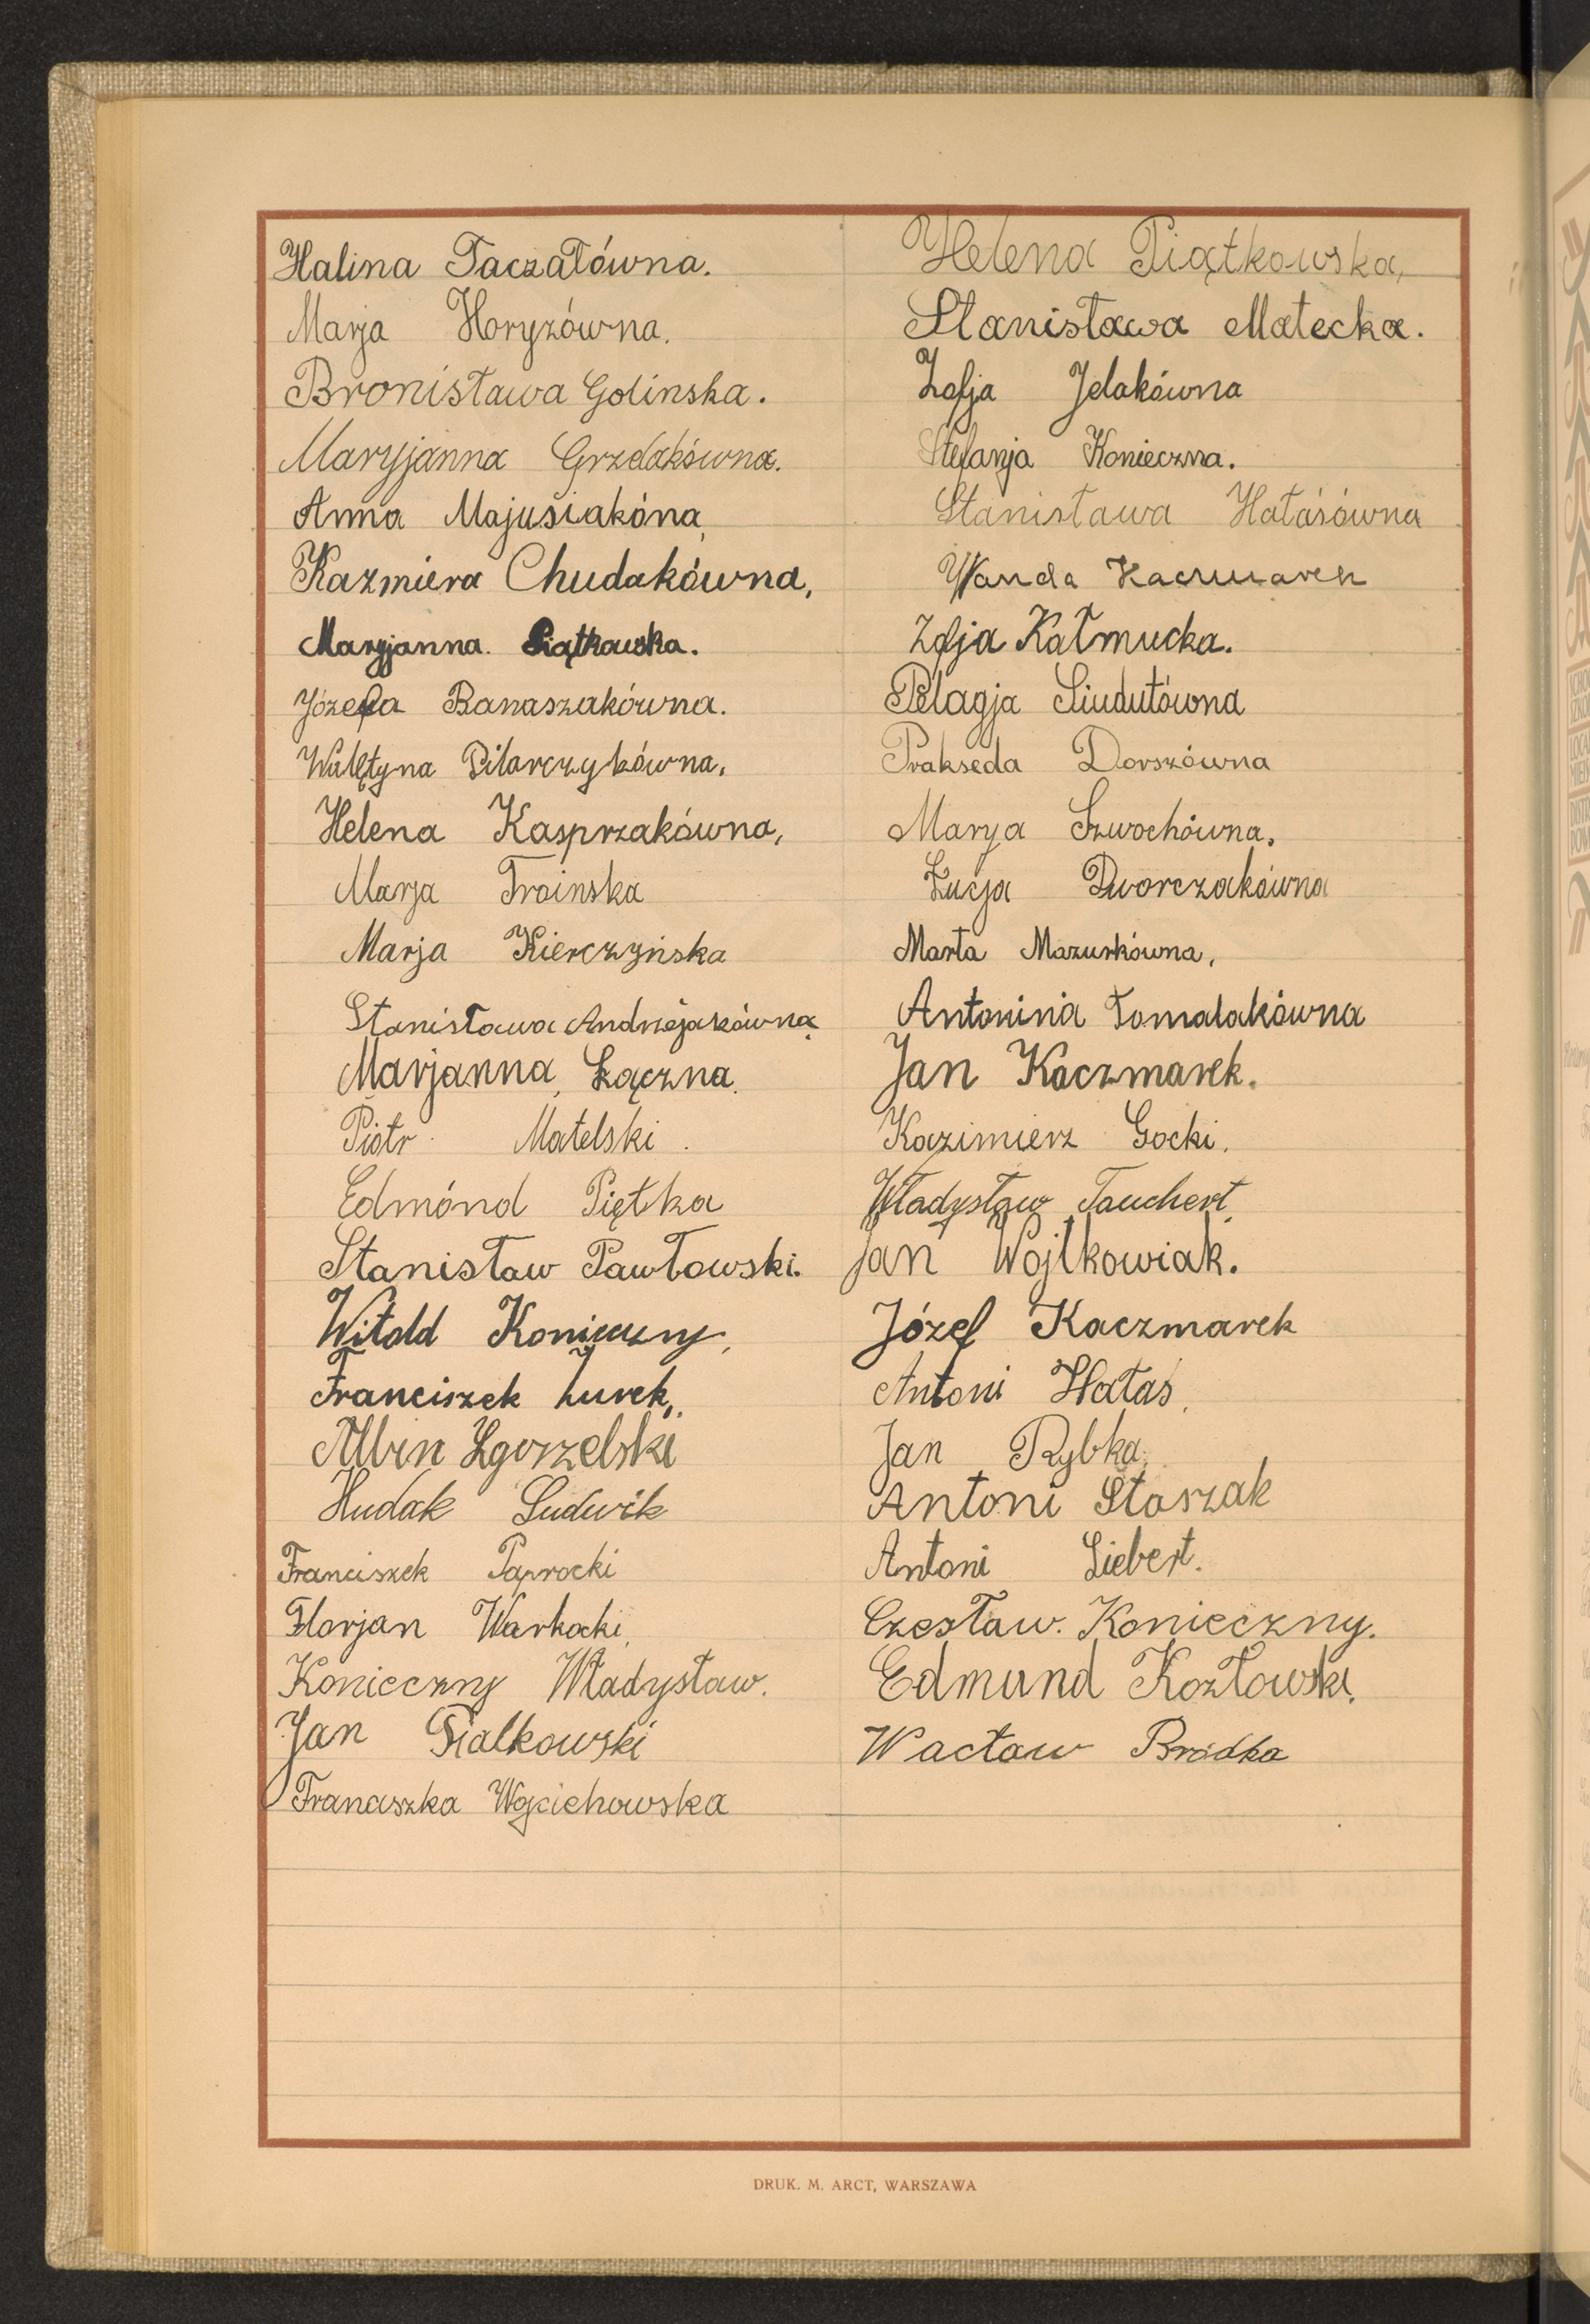 Halina Taczałówna.
Marja Horyzówna.
Bronisława Golinska.
Maryjanna Grzelakówna.
Anna Majuśiakóna,
Kazmiera Chudakówna,
Maryjanna. Piątkowska.
Józefa Banaszakówna.
Walętyna Pilarczykówna,
Helena Kasprzakówna,
Marja Troinska
Marja Kierczyńska
Stanisława Andrzéjakówna,
Marjanna, Łączna.
Piotr Matelski.
Edmónd Piętka
Stanisław Pawłowski.
Witold Konieczny,
Franciszek Żurek,
Albin Zgorzelski
Hudak Ludwik
Franciszek Paprocki
Florjan Warkocki,
Konieczny Władysław.
Jan Fialkowski
Franciszka Wojciehowska
Helena Piątkowska,
Stanisława Małecka.
Zofja Jelakówna
Stefanja Konieczna.
Stanisława Hałásówna
Wanda Kaczmarek
Zofja Kałmucka.
Pelagja Siudutówna
Prakseda Dorszówna
Marya Szwochówna.
Łucja Dworczakówna
Marta Mazurkówna,
Antonina Tomalakówna
Jan Kaczmarek.
Kazimierz Gocki.
Władysław Tauchert.
Jan Wojtkowiak.
Józef Kaczmarek
Antoni Hałas,
Jan Rybka,
Antoni Staszak
Antoni Siebert.
Czesław. Konieczny.
Edmund Kozłowski,
Wacław Bródka
DRUK. M. ARCT, WARSZAWA